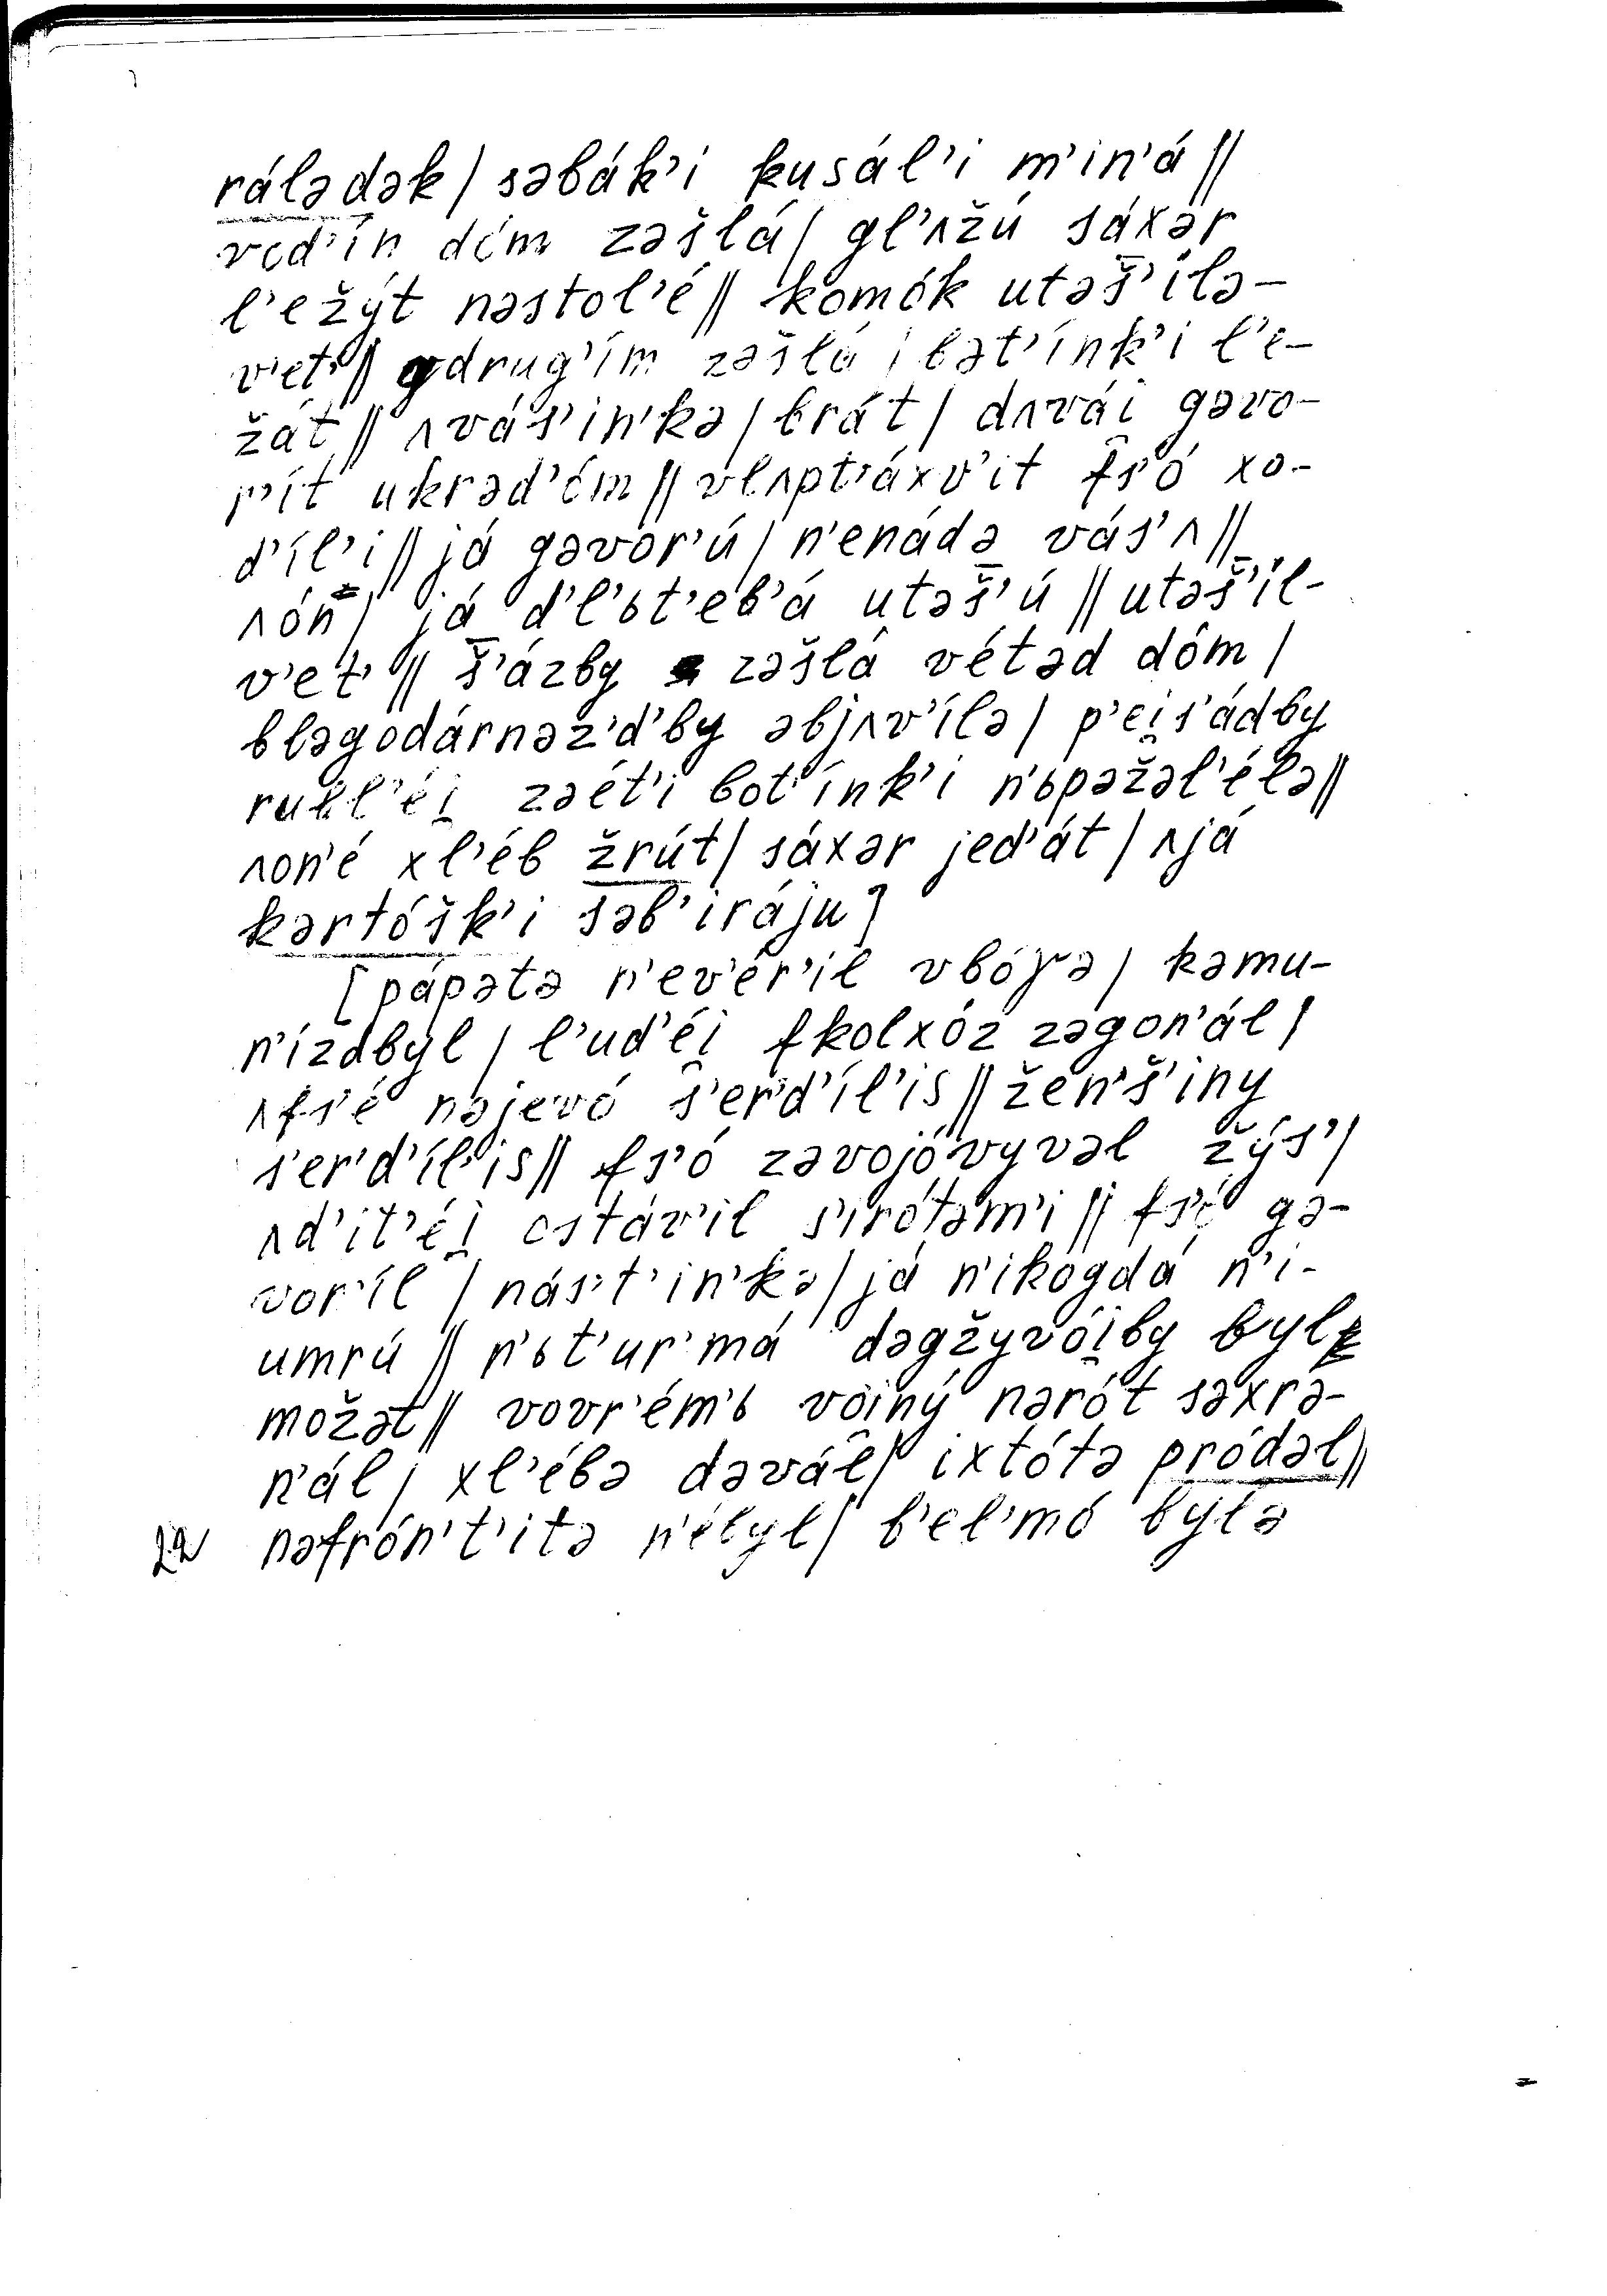 rálədək / səbák’i kusál’i m’in’á //
vod’ín dóm zəšlá / gl’ʌžú sáxər
l’ežýt nəstol’é // komók utəš̄’ílə-
v’et’ // gdrug’ím zəšlá / bət’ínk’i l’e-
žát // ʌvás’in’kə / brát / dʌvái gəvo-
r’ít ukrəd’óm // vlʌpt’áxv’it fs’ó xo-
d’íl’i // já gəvor’ú / n’enádə vás’ʌ //
ʌón / já d’l’ьt’eb’á utəš̄’ú // utəš̄’íl-
v’et’ // š̄’ázby zəšlá vétəd dóm /
bləgodárnəz’d’by əbjʌv’ílə / p’ei̯s’ádby
rubl’éi̯ zəét’i bot’ínk’i n’ьpəžəl’élə //
ʌon’é xl’éb žrút / sáxər jed’át / ʌjá
kərtóšk’i səb’iráju]
[pápətə n’ev’ér’il vbóɣə / kəmu-
n’ízdbyl / l’ud’éi̯ fkolxóz zəgon’ál /
ʌfs’é nəjevó s’er’d’íl’is // žen’š’iny
s’er’d’íl’is // fs’ó zəvojóvyvəl žýs’ /
ʌd’it’éi̯ ostáv’il s’irótəm’i // fs’ó gə-
vor’íl / nás’t’in’kə / já n’ikogdá n’i-
umrú // n’ьt’ur’má dəgžyvói̯by byl
možət // vovr’ém’ь voiný nərót səxrə-
n’ál / xl’ébə dəvál / ixtótə pródəl //
nəfrón’t’itə n’ébyl / b’el’mó bylə
22